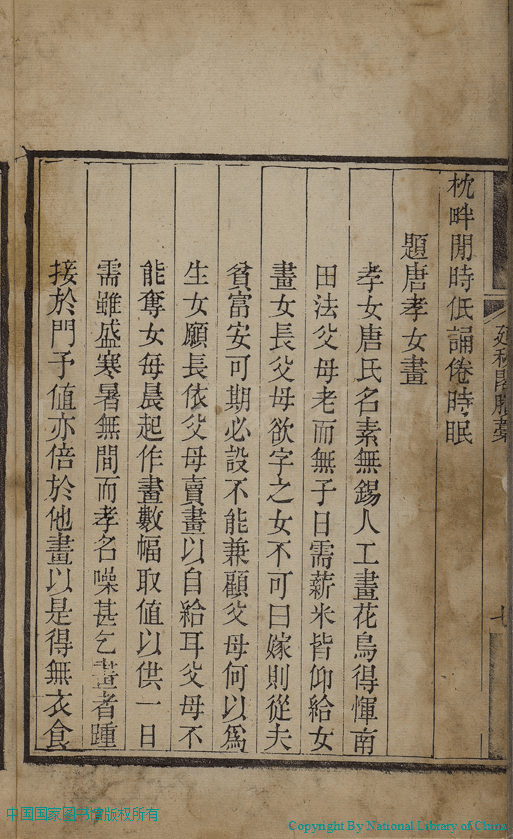 枕畔閒時低誦倦時眠
題唐孝女畫
孝女唐氏名素無錫人工畫花鳥得惲南
田法父母老而無子日需薪米皆仰給女
畫女長父母欲字之女不可曰嫁則從夫
貧富安可期必設不能兼顧父母何以為
生女願長依父母賣畫以自給耳父母不
能奪女每晨起作畫數幅取值以供一日
需雖盛寒暑無間而孝名噪甚乞畫者踵
接於門予值亦倍於他畫以是得無衣食
七
中国国家图书馆版权所有
Copyright By National Library of China